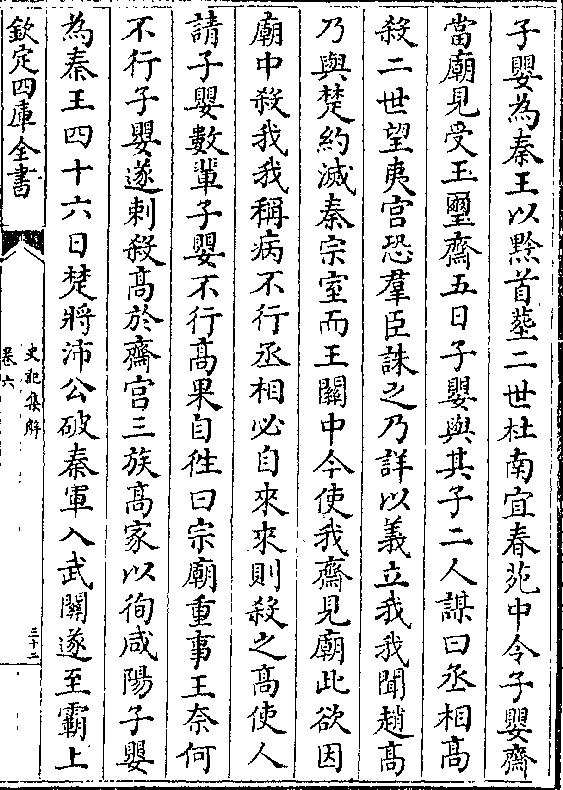 子嬰為秦王以黔首葬二世杜南宜春苑中令子嬰齋
當廟見受玉璽齋五日子嬰與其子二人謀曰丞相高
殺二世望夷宫恐羣臣誅之乃詳以義立我我聞趙高
乃與楚約滅秦宗室而王關中今使我齋見廟此欲因
廟中殺我我稱病不行丞相必自來來則殺之高使人
請子嬰數輩子嬰不行高果自徃曰宗廟重事王奈何
不行子嬰遂刺殺高於齋宫三族高家以徇咸陽子嬰
為秦王四十六日楚將沛公破秦軍入武關遂至霸上
欽定四庫全書
史記集解
卷六
三十二